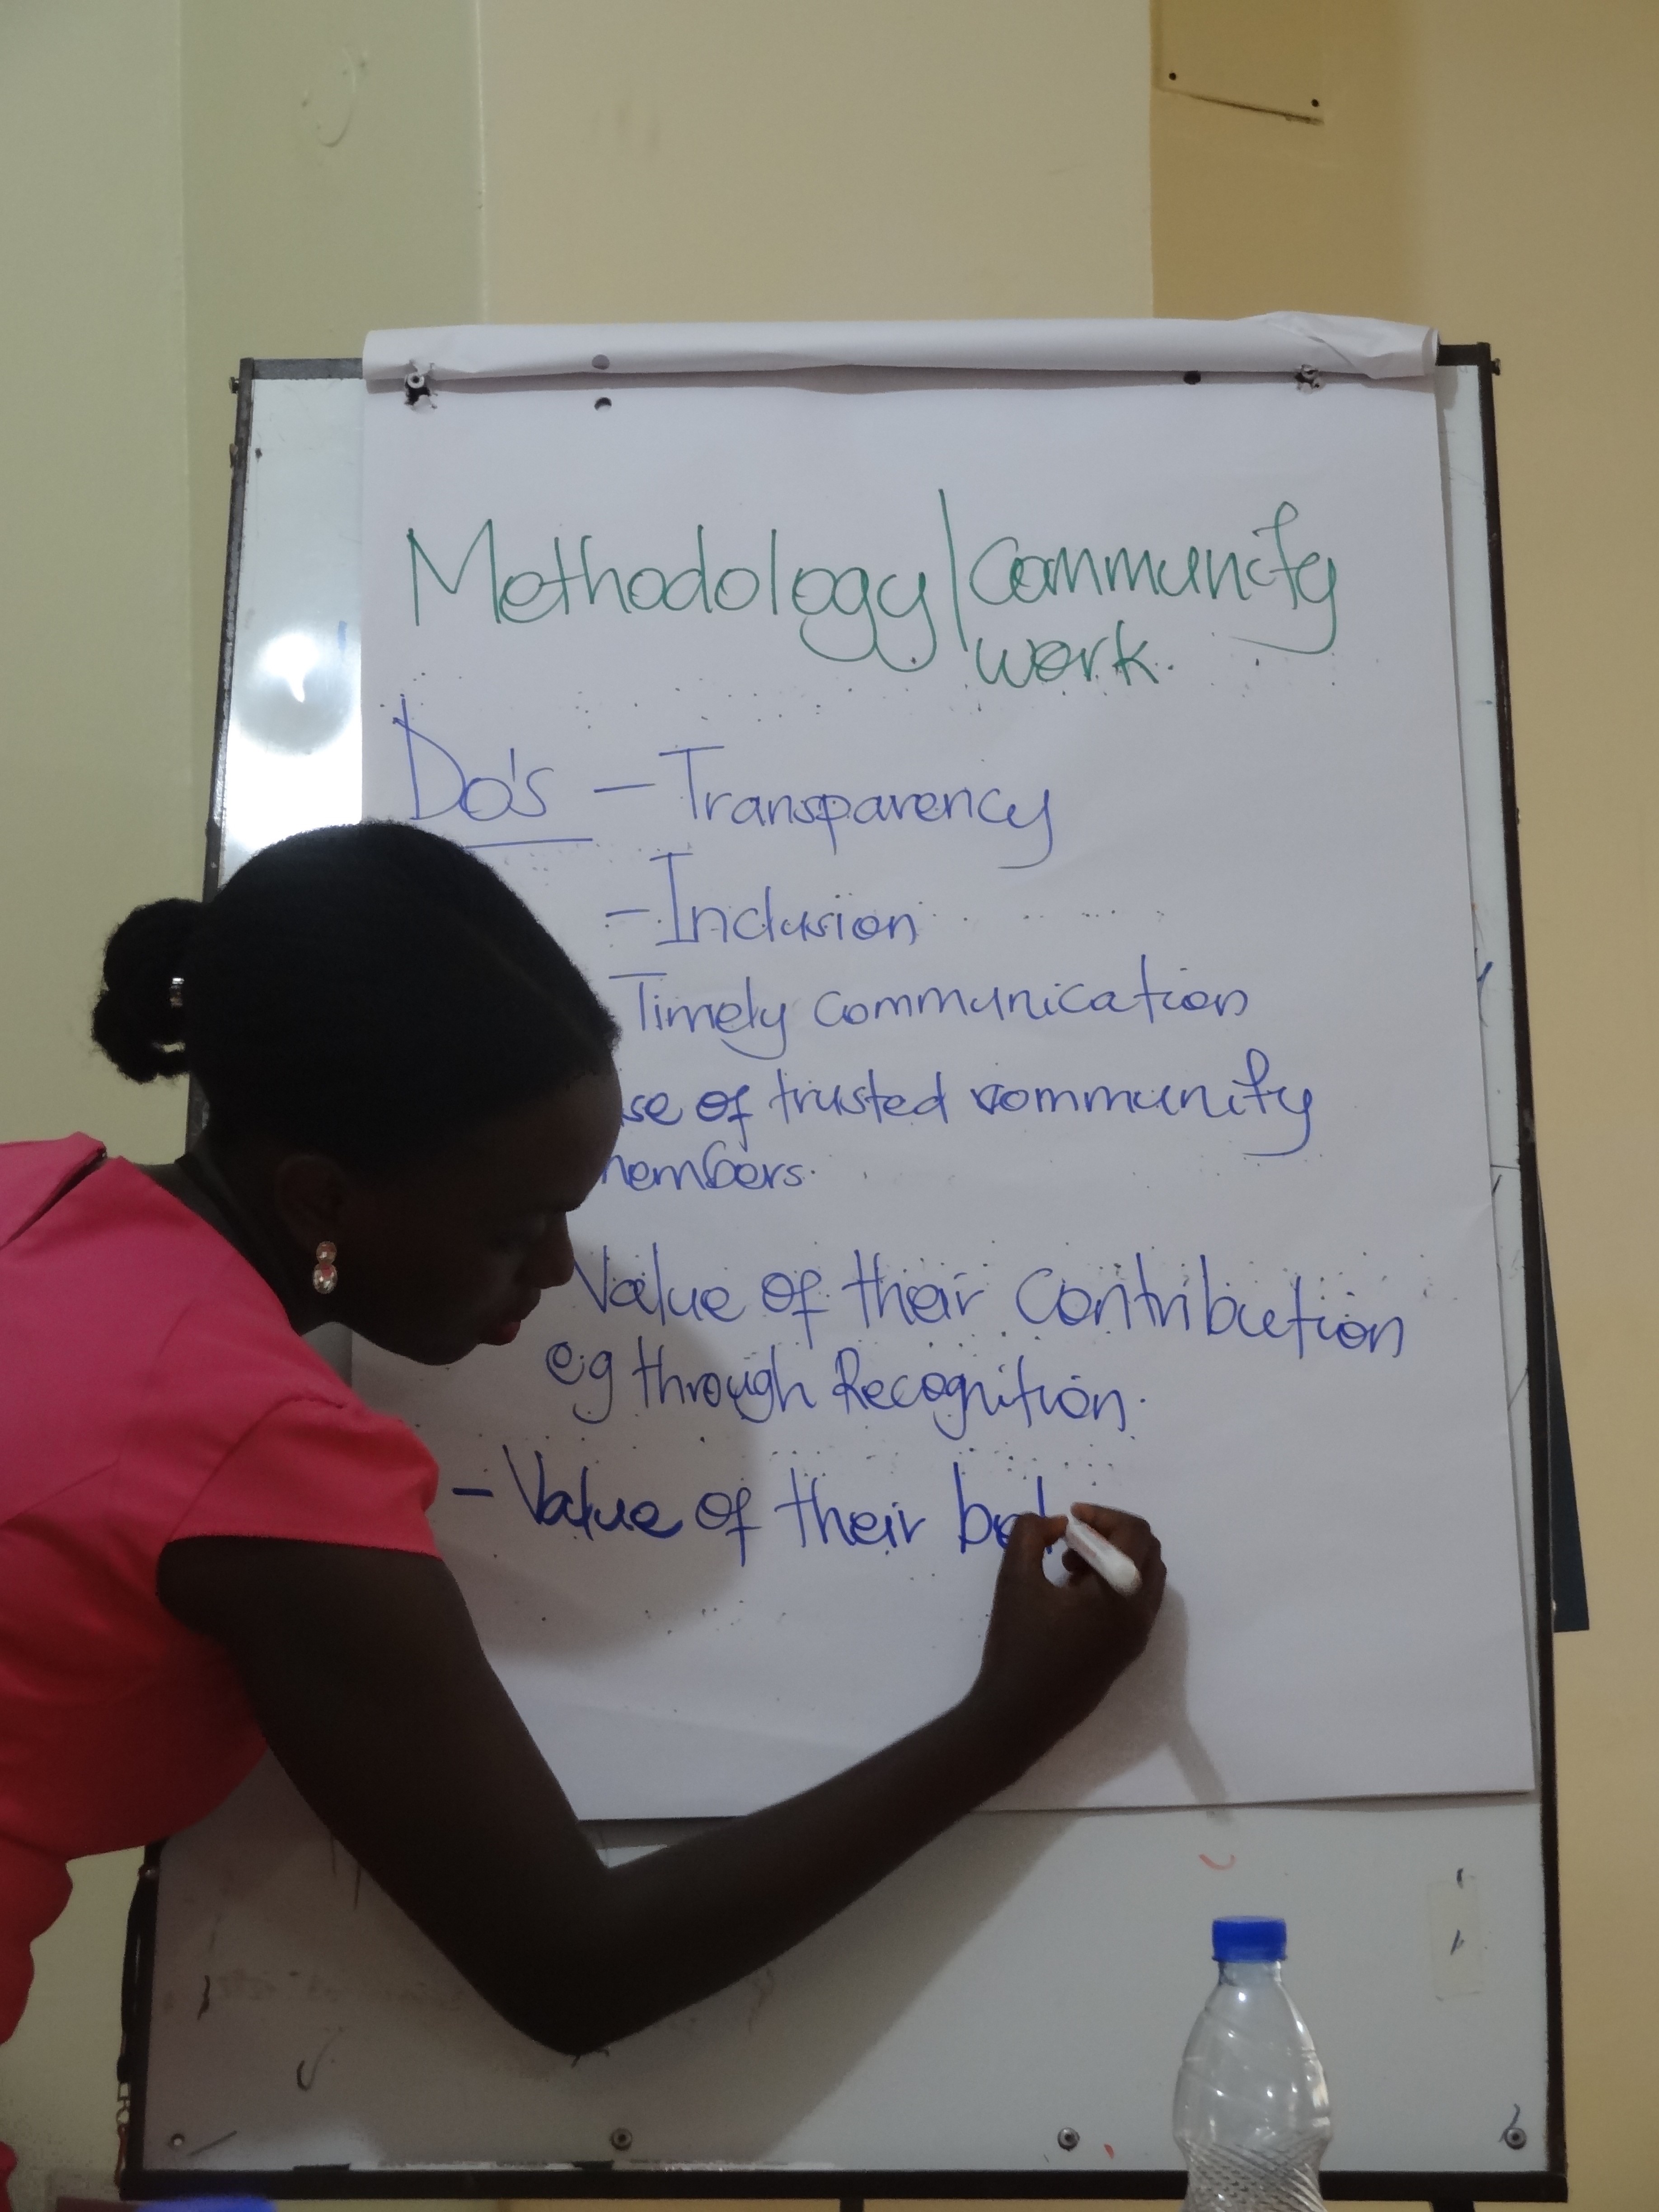 Methodology/Community
work.
Do's - Transparency
- Inclusion
Timely communication
se of trusted community
members.
Value of their Contribution
eg through Recognition.
- Value of their